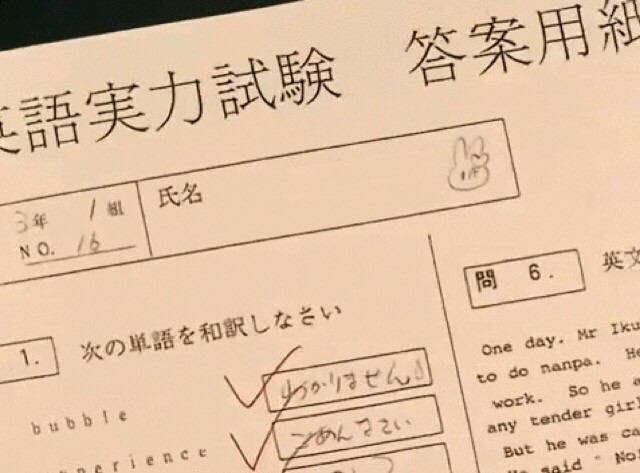 英語実力試験 答案用紙
3年 1組 氏名
NO. 16
1. 次の単語を和訳しなさい
bubble わかりません♪
experience ごめんなさい
問 6. 英文
One day. Mr Iku
to do nanpa. He
work. So he a
any tender girl
But he was ca
He said " No